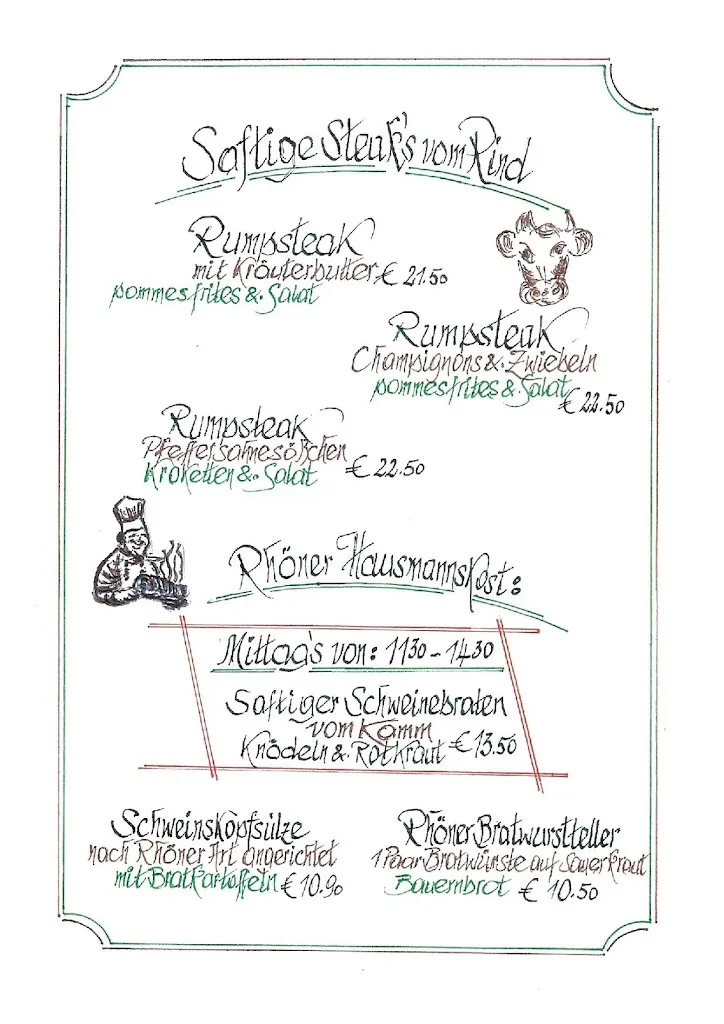 Saftige Steak's vom Rind
Rumpsteak
mit Kräuterbutter € 21.50
pommes frites & Salat
Rumpsteak
Champignons & Zwiebeln
pommes frites & Salat
€ 22.50
Rumpsteak
Pfeffersahnesößchen
Kroketten & Salat € 22.50
Rhöner Hausmannskost:
Mittag's von: 11 30 - 14 30
Saftiger Schweinebraten
vom Kamm
Knödeln & Rotkraut € 13.50
Schweinskopfsülze
nach Rhöner Art angerichtet
mit Bratkartoffeln € 10.90
Rhöner Bratwurstteller
1 Paar Bratwürste auf Sauerkraut
Bauernbrot € 10.50